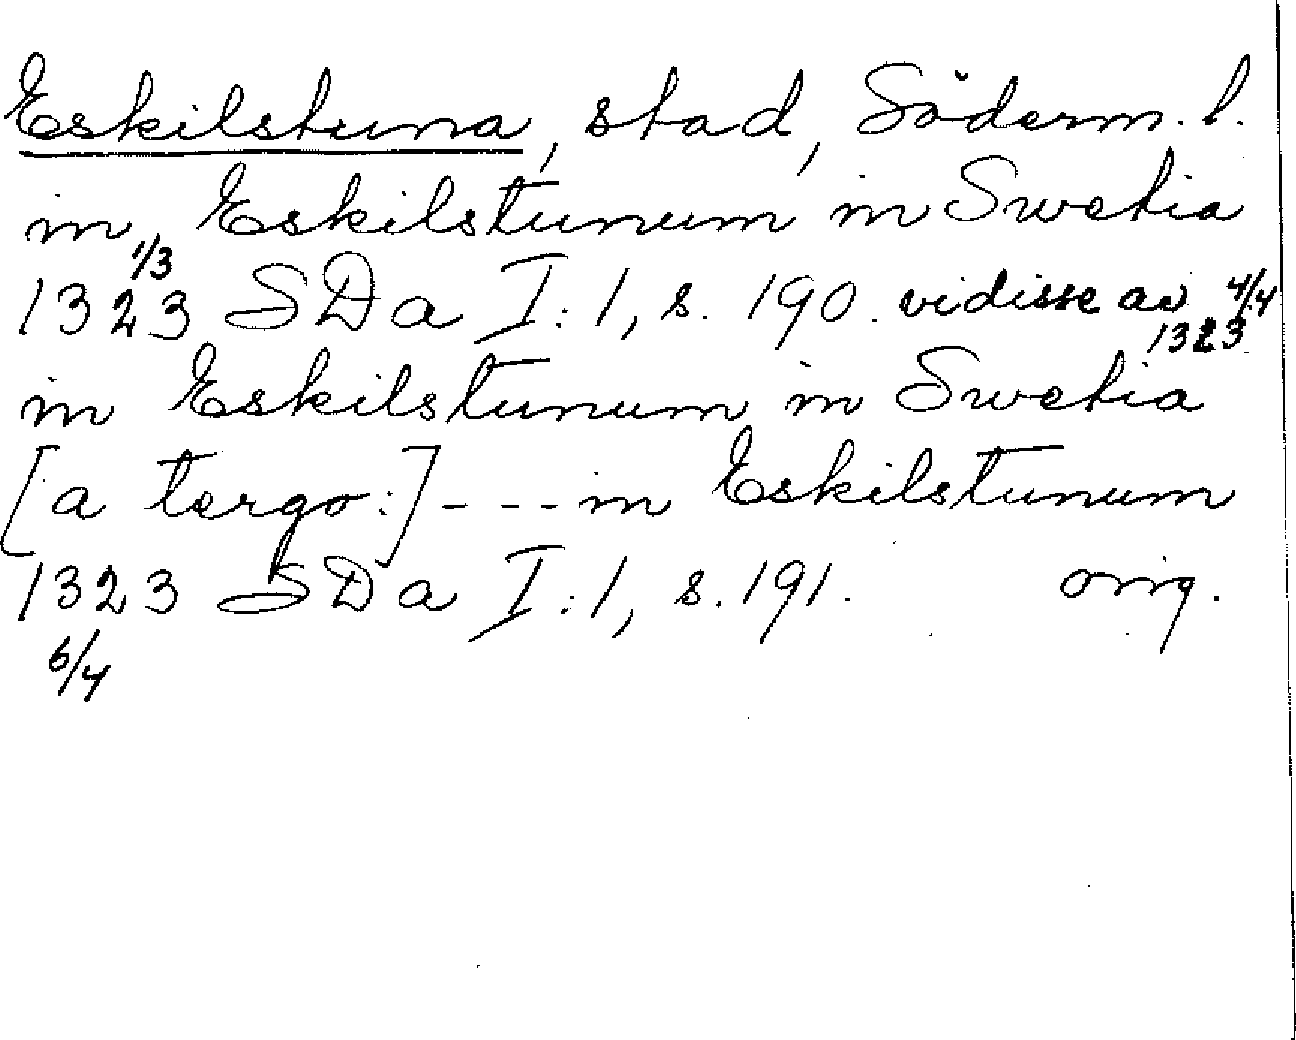 Eskilstuna, stad, Söderm. l.
in Eskilstunum in Swetia
1/3
1323 SDa I:1, s. 190. vidisse av 4/4
1323
in Eskilstunum in Swetia
[a tergo:] - - - in Eskilstunum
1323 SDa I:1, s. 191. orig.
6/4